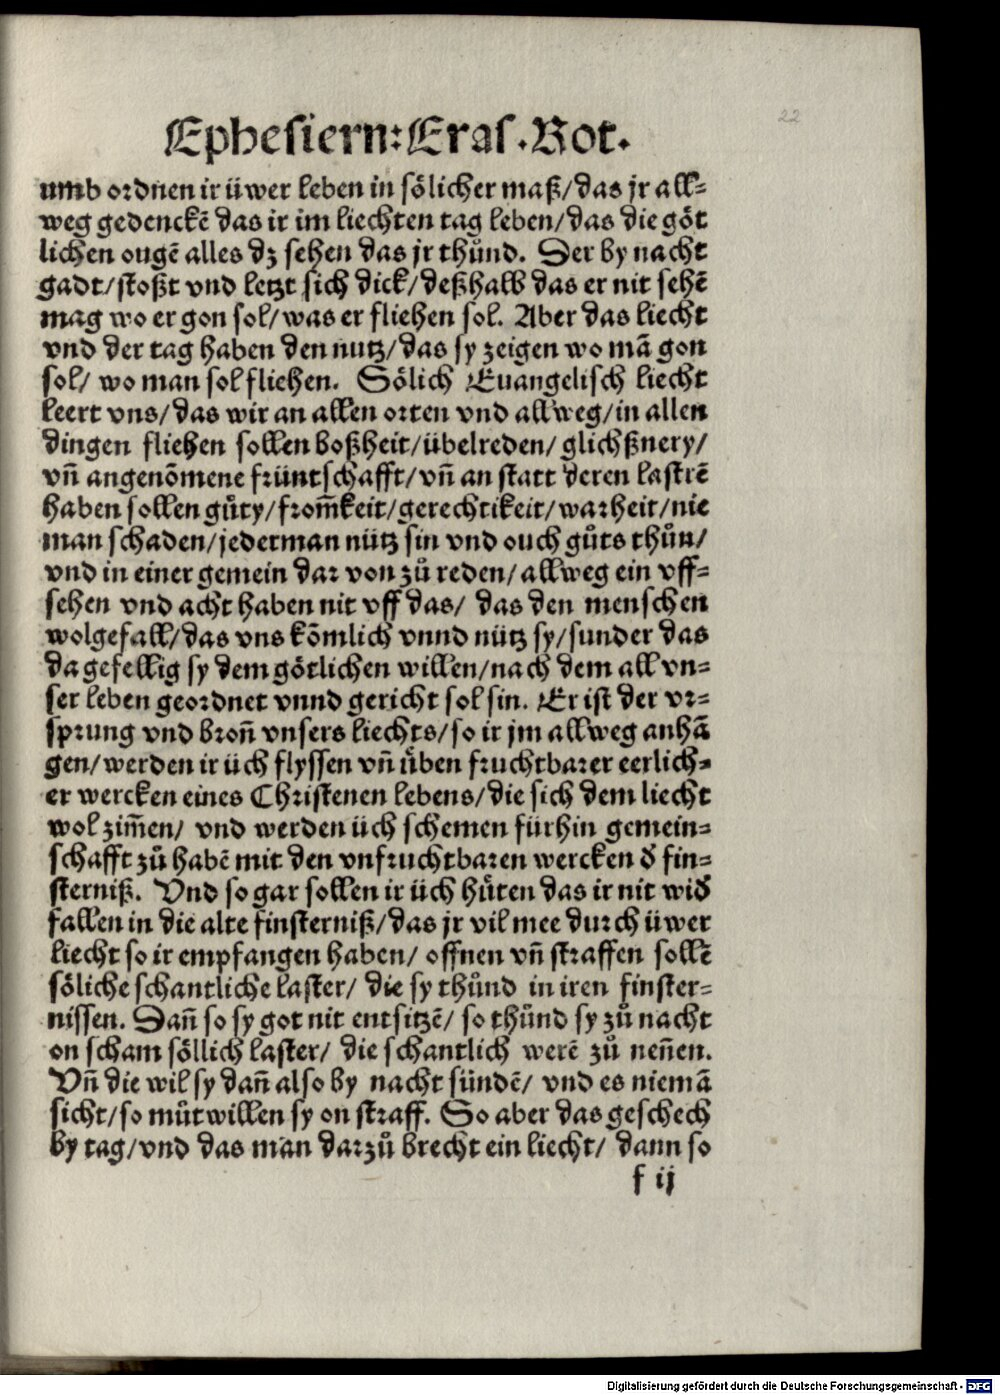 22
Ephesiern: Eras. Rot.
umb ordnen ir üwer leben in sölicher maß/ das jr all⸗
weg gedenckē das ir im liechten tag leben/ das die göt
lichen ougē alles dz sehen das jr thůnd. Der by nacht
gadt/ stoßt vnd letzt sich dick/ deßhalb das er nit sehē
mag wo er gon sol/ was er fliehen sol. Aber das liecht
vnd der tag haben den nutz/ das sy zeigen wo mā gon
sol/ wo man sol fliehen. Sölich Euangelisch liecht
leert vns/ das wir an allen orten vnd allweg/ in allen
dingen fliehen sollen boßheit/ übelreden/ glichßnery/
vn̄ angenōmene früntschafft/ vn̄ an statt deren lastrē
haben sollen gůty/ from̄keit/ gerechtikeit/ warheit/ nie
man schaden/ jederman nütz sin vnd ouch gůts thůn/
vnd in einer gemein dar von zů reden/ allweg ein vff⸗
sehen vnd acht haben nit vff das/ das den menschen
wolgefall/ das vns kōmlich vnnd nütz sy/ sunder das
da gefellig sy dem götlichen willen/ nach dem all vn⸗
ser leben geordnet vnnd gericht sol sin. Er ist der vr⸗
sprung vnd bron̄ vnsers liechts/ so ir jm allweg anhā
gen/ werden ir üch flyssen vn̄ üben fruchtbarer eerlich⸗
er wercken eines Christenen lebens/ die sich dem liecht
wol zim̄en/ vnd werden üch schemen fürhin gemein⸗
schafft zů habē mit den vnfruchtbaren wercken d̕ fin⸗
sterniß. Vnd so gar sollen ir üch hüten das ir nit wid̕
fallen in die alte finsterniß/ das jr vil mee durch üwer
liecht so ir empfangen haben/ offnen vn̄ straffen sollē
söliche schantliche laster/ die sy thůnd in iren finster⸗
nissen. Dan̄ so sy got nit entsitzē/ so thůnd sy zů nacht
on scham söllich laster/ die schantlich werē zů nen̄en.
Vn̄ die wil sy dan̄ also by nacht sündē/ vnd es niemā
sicht/ so můtwillen sy on straff. So aber das geschech
by tag/ vnd das man darzů brecht ein liecht/ dann so
f ij
Digitalisierung gefördert durch die Deutsche Forschungsgemeinschaft - DFG